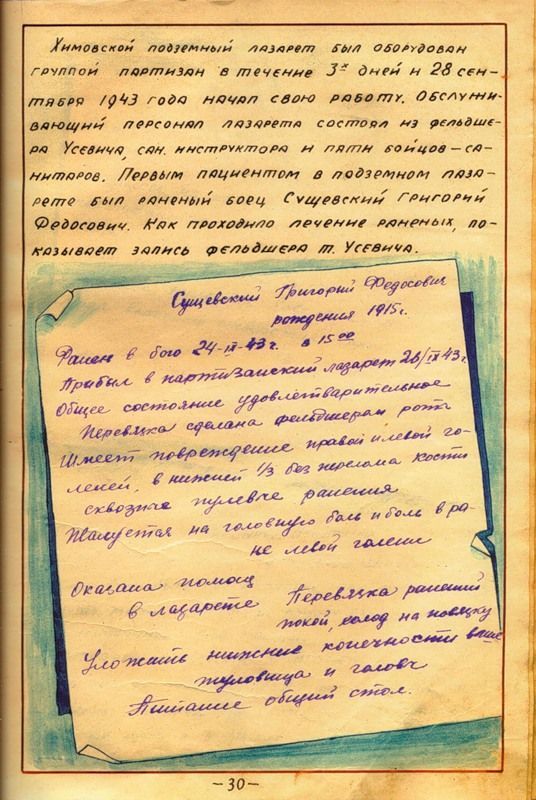 Химовской подземный лазарет был оборудован
группой партизан в течение 3х дней и 28 сен-
тября 1943 года начал свою работу. Обслужи-
вающий персонал лазарета состоял из фельдше-
ра Усевича, сан. инструктора и пяти бойцов-са-
нитаров. Первым пациентом в подземном лаза-
рете был раненый боец Сущевский Григорий
Федосович. Как проходило лечение раненых, по-
казывает запись фельдшера т. Усевича.
Сущевский Григорий Федосович
рождения 1915г.
Ранен в бою 24-IX-43г. в 15 00
Прибыл в партизанский лазарет 28/IX 43г.
Общее состояние удовлетварительное
Перевязка сделана фельдшерам роты
Имеет повреждение правой и левой го-
леней, в нижней 1/3 без перелома кости
сквозные пулевые ранения
Жалуется на головную боль и боль в ра-
не левой голени
Оказана помощ
в лазарете
Перевязка ранений
покой, холод на повязку
Уложить нижние конечности выше
туловища и головы
Питание общий стол.
-30-